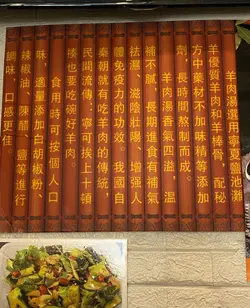 羊肉湯選用寧夏鹽池灘
羊優質羊肉和羊棒骨，配秘
方中藥材不加味精等添加
劑，長時間熬制而成。
羊肉湯香氣四溢，溫
補不膩，長期進食有補氣
祛濕、滋陰壯陽、增强人
體免疫力的功效。我國自
秦朝就有吃羊肉的傳統，
民間流傳、寧可挨上十頓
揍也要吃碗好羊肉。
食用時可按個人口
味、適量添加白胡椒粉、
辣椒油、陳醋、鹽等進行
調味，口感更佳。